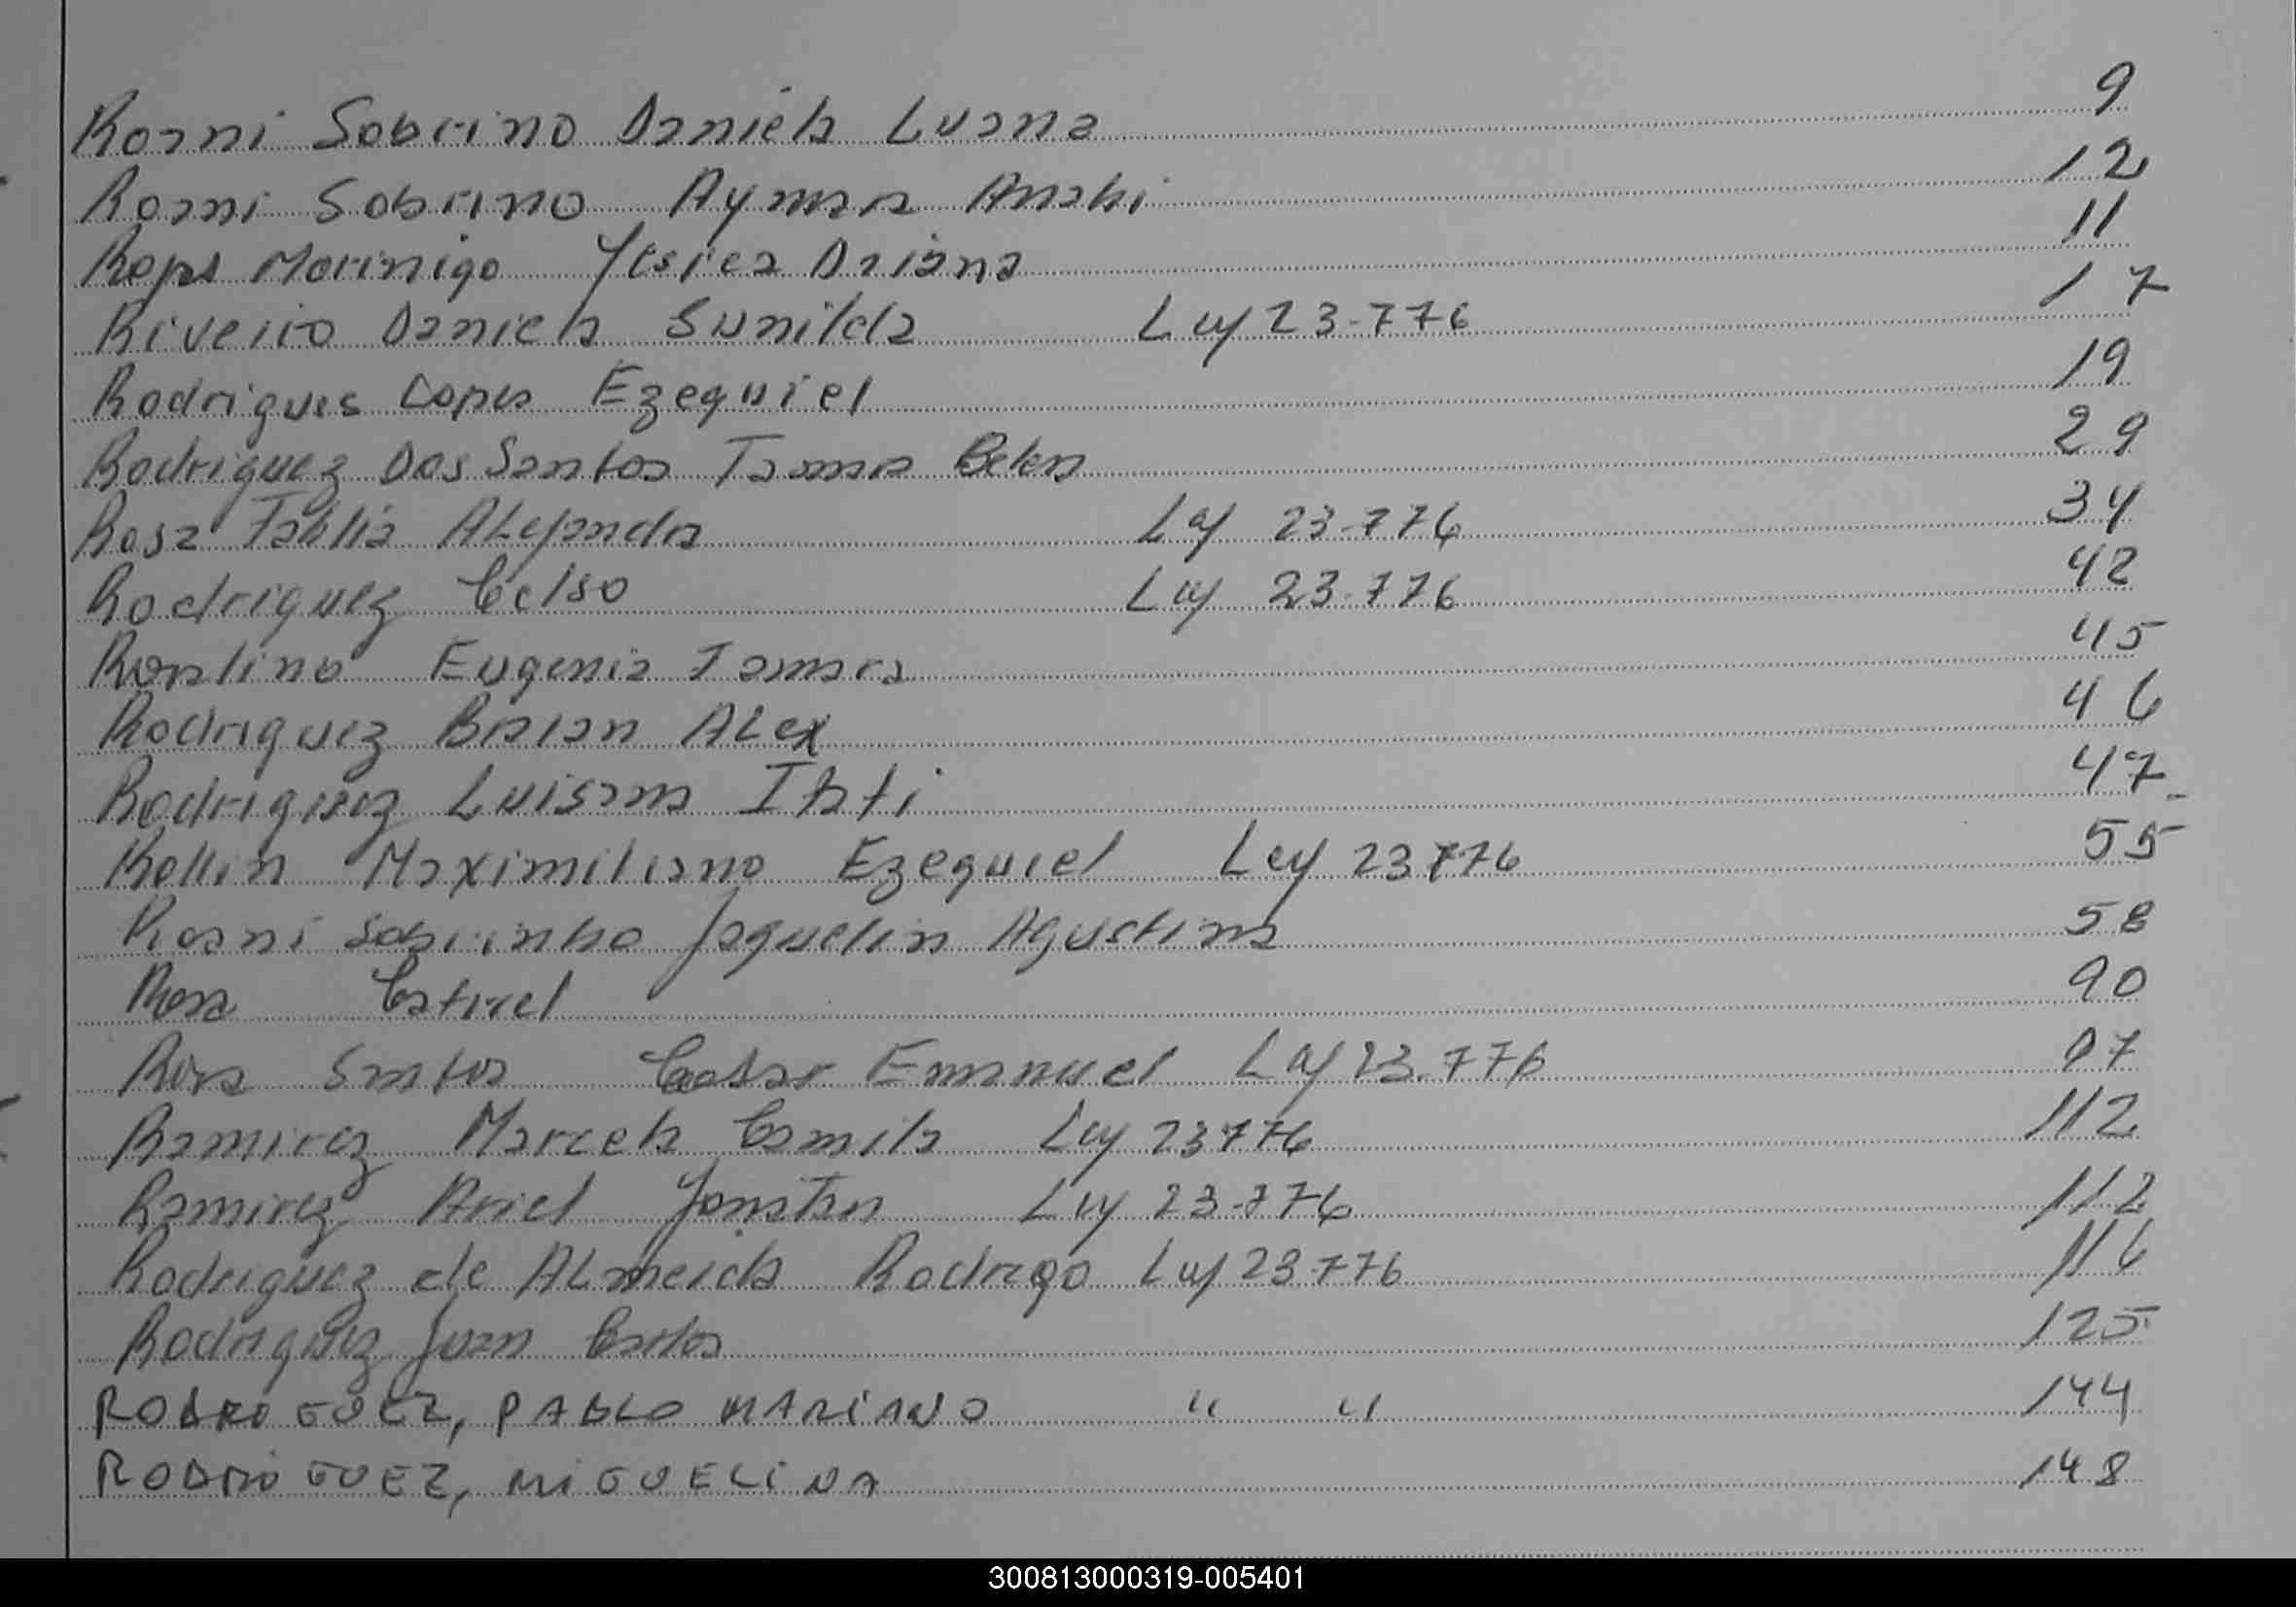 Roani Sobrino Daniela Luana 9
Roani Sobrino Aymara Anahi 12
Rops Morinigo Yesica Driana 11
Riveiro Daniela Sunilda Ley 23.776 17
Rodrigues Lopes Ezequiel 19
Rodriguez Dos Santos Tamara Belen 29
Rosa Fabilia Alejandra Ley 23.776 34
Rodriguez Celso Ley 23.776 42
Eugenia Tamara 45
Rodriguez Braian Alex 46
Rodriguez Luisana Itati 47
Rollin Maximiliano Ezequiel Ley 23776 55
Roani Sobrinho Jaquelin Agustina 58
Rosa Catriel 90
Santos Cesar Emanuel Ley 23.776 97
Ramirez Marcela Camila Ley 23776 112
Ramirez Ariel Jonatan Ley 23.776 112
Rodriguez de Almeida Rodrigo Ley 23.776 116
Rodriguez Juan Carlos 125
RODRIGUEZ, PABLO MARIANO " " 144
RODRIGUEZ, MIGUELINA 148
300813000319-005401